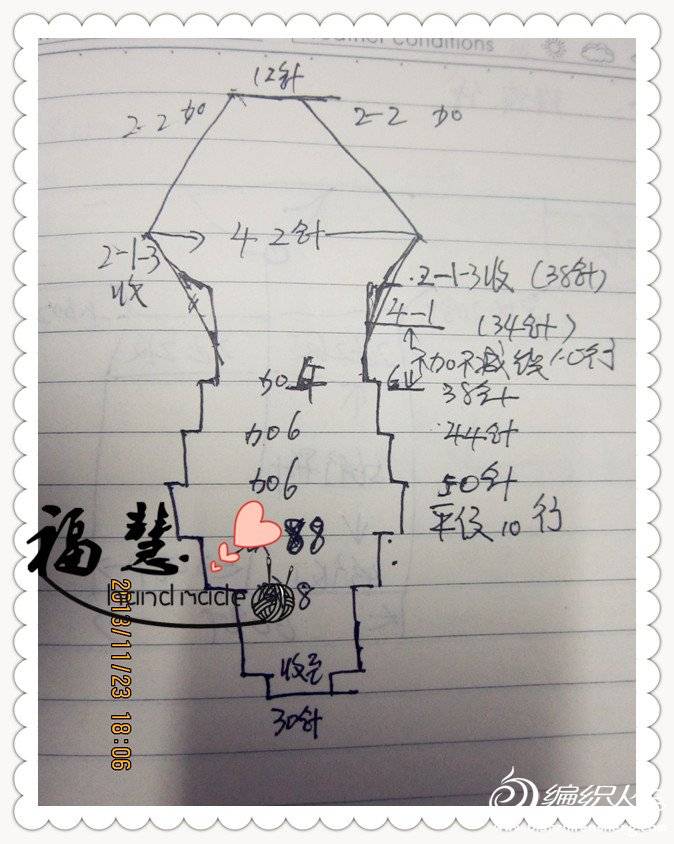 Weather conditions
12针
2-2加 2-2 加
42针
2-1-3 收
2-1-3收 (38针)
4-1
(34针)
不加不减织10行
加4 6
38针
加6 44针
加6 50针
平织10行
88
福慧
handmade 8
2013/11/23 18:06
收
30针
编织人生